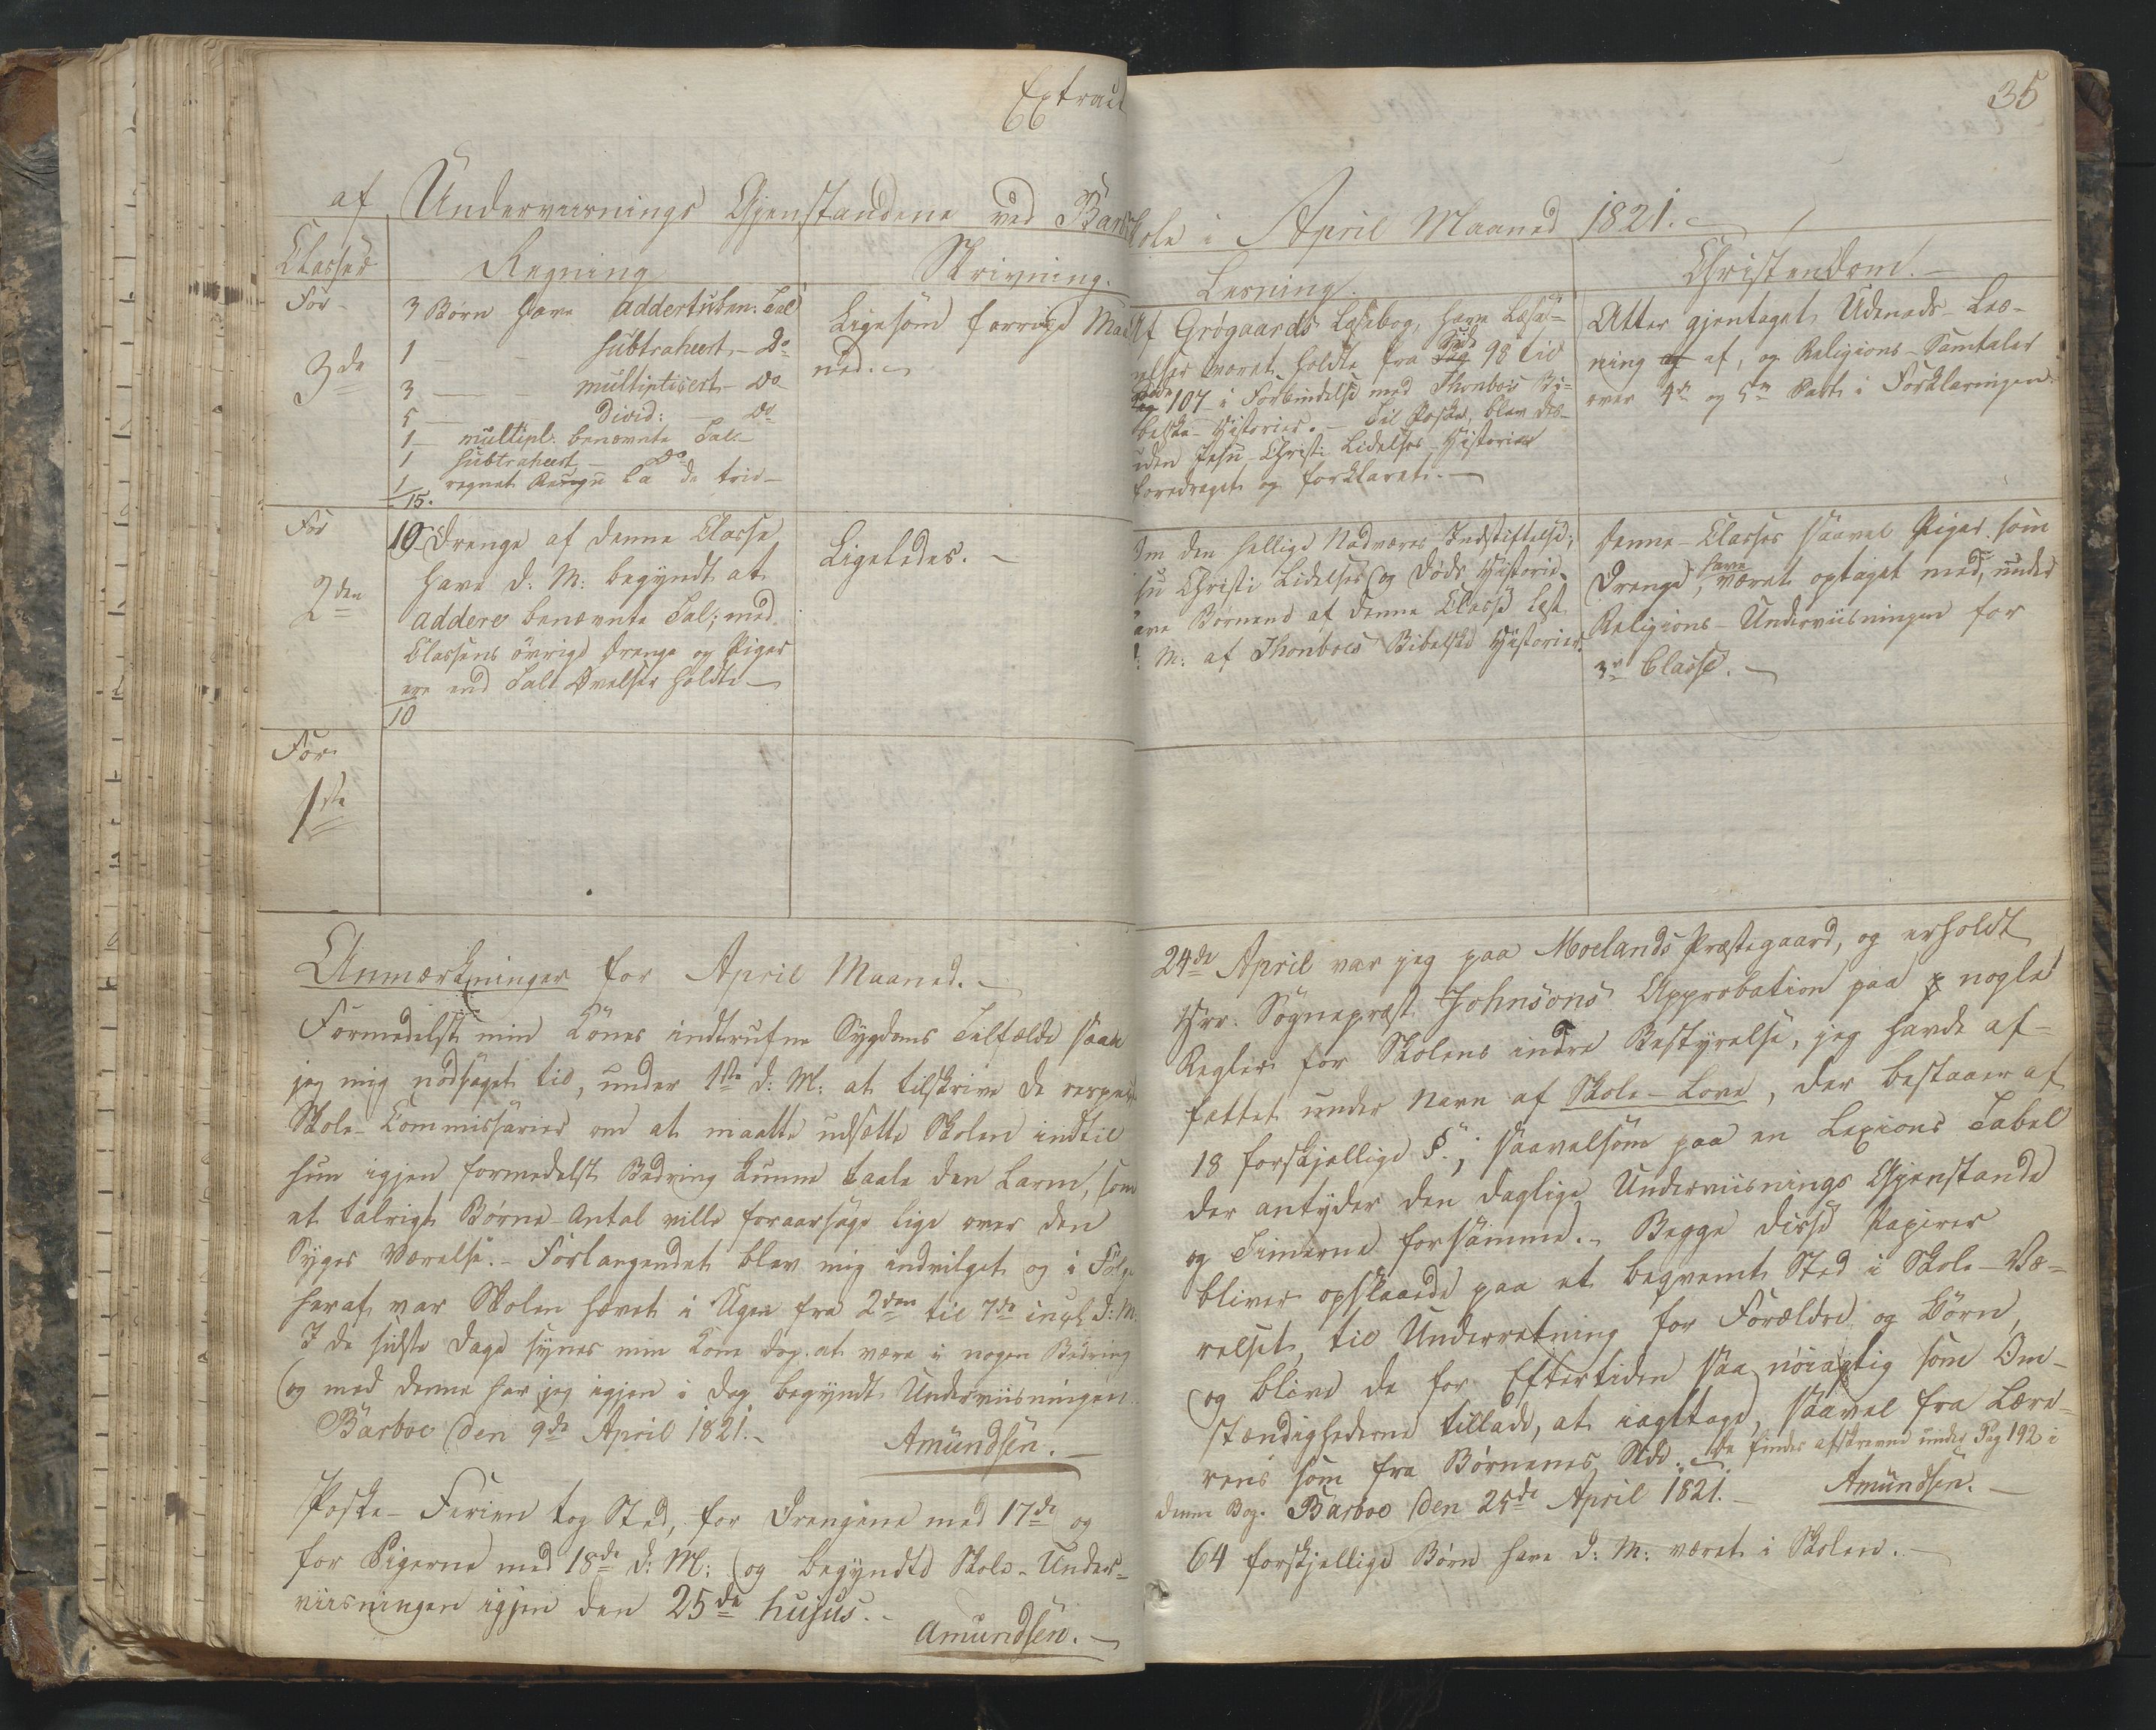 Extract
35
af Underviisnings Gjenstandene ved Barboe
Skole i April Maaned 1821.
Classer
Regning
Skrivning.
Læsning.
Christendom.
For
3de
3 Børn have addert ube: Tal
1 — — subtrahert — Do
3 — multiplicert — Do
5 — Divid: Do
1 — multipl. benævnte Tal
1 subtrahert — Do
1 regnet Regu la de trie —
15.
Ligesom forrige Maa
ned.
Af Grøgaards Læsebog, have Læseø=
velser været holdte fra Side 98 til
Side 107 i Forbindelse med Thonboes Bi=
belske Historier. — Til Paaske blev des=
uden Jesu Christi Lidelses Historie
foredraget og forklaret. —
Atter gjentaget Udenads-Læs-
ning af af, og Religions-Samtaler
over 4de og 5te Part i Forklaringen.
For
2den
10 Drenge af denne Classe
have d: M: begyndt at
addere benævnte Tal; med
Classens övrige Drenge og Piger
ere end Tall Øvelser holdte —
10
Ligeledes. —
Om den hellige Nadveres Indstiftelse,
Jesu Christi Lidelses og Døds Historie,
have Børnene af denne Classe læst
d: M: af Thonboes Bibelske Historier.
Denne Classes saavel Piger som
Drenge, have været optaget med, under
Religions-Underviisningen for
3die Classe. —
For
1ste
Anmærkninger for April Maaned. —
Formedelst min Kones indtrufne Sygdoms Tilfælde saae
jeg mig nødsaget til, under 1ste d: M: at tilskrive de respect
Skole-Commissairer om at maatte udsætte Skolen indtil
hun igjen formedelst Bedring kunne taale den Larm, som
et talrigt Børne-Antal ville foraarsage lige over den
Syges Værelse. — Forlangendet blev mig indvilget og i Følge
heraf var Skolen hævet i Ugen fra 2den til 7de incl. d: M.
I de sidste Dage synes min Kone dog at være i nogen Bedring
og med denne har jeg igjen i dag begyndt Underviisningen.
Barboe den 9de April 1821. —
Amundsen. —
Paaske-Ferien tog Sted, for Drengene med 17de og
for Pigerne med 18de d: M: og begyndte Skole-Under=
viisningen igjen den 25de hujus. —
Amundsen. —
24de April var jeg paa Moelands Præstegaard, og erholdt
Hrr. Sognepræst Johnsons Approbation paa nogle
Regler for Skolens indre Bestyrelse, jeg havde af=
fattet under Navn af Skole-Love, der bestaaer af
18 forskjellige §.; saavelsom paa en Lexions Tabel
der antyder den daglige Underviisnings Gjenstande
og Timerne forsamme. — Begge disse Papirer
bliver opslaaede paa et beqvemt Sted i Skole-Væ=
relset, til Underretning for Forældre og Børn,
og blive de for Eftertiden saa nøiagtig som Om-
stændighederne tillade, at iagttage, saavel fra Lære-
rens som fra Børnenes Side. — De findes afskrevne under Pag 192 i
denne Bog. Barboe den 25de April 1821. —
Amundsen. —
64 forskjellige Børn have d: M: været i Skolen. —